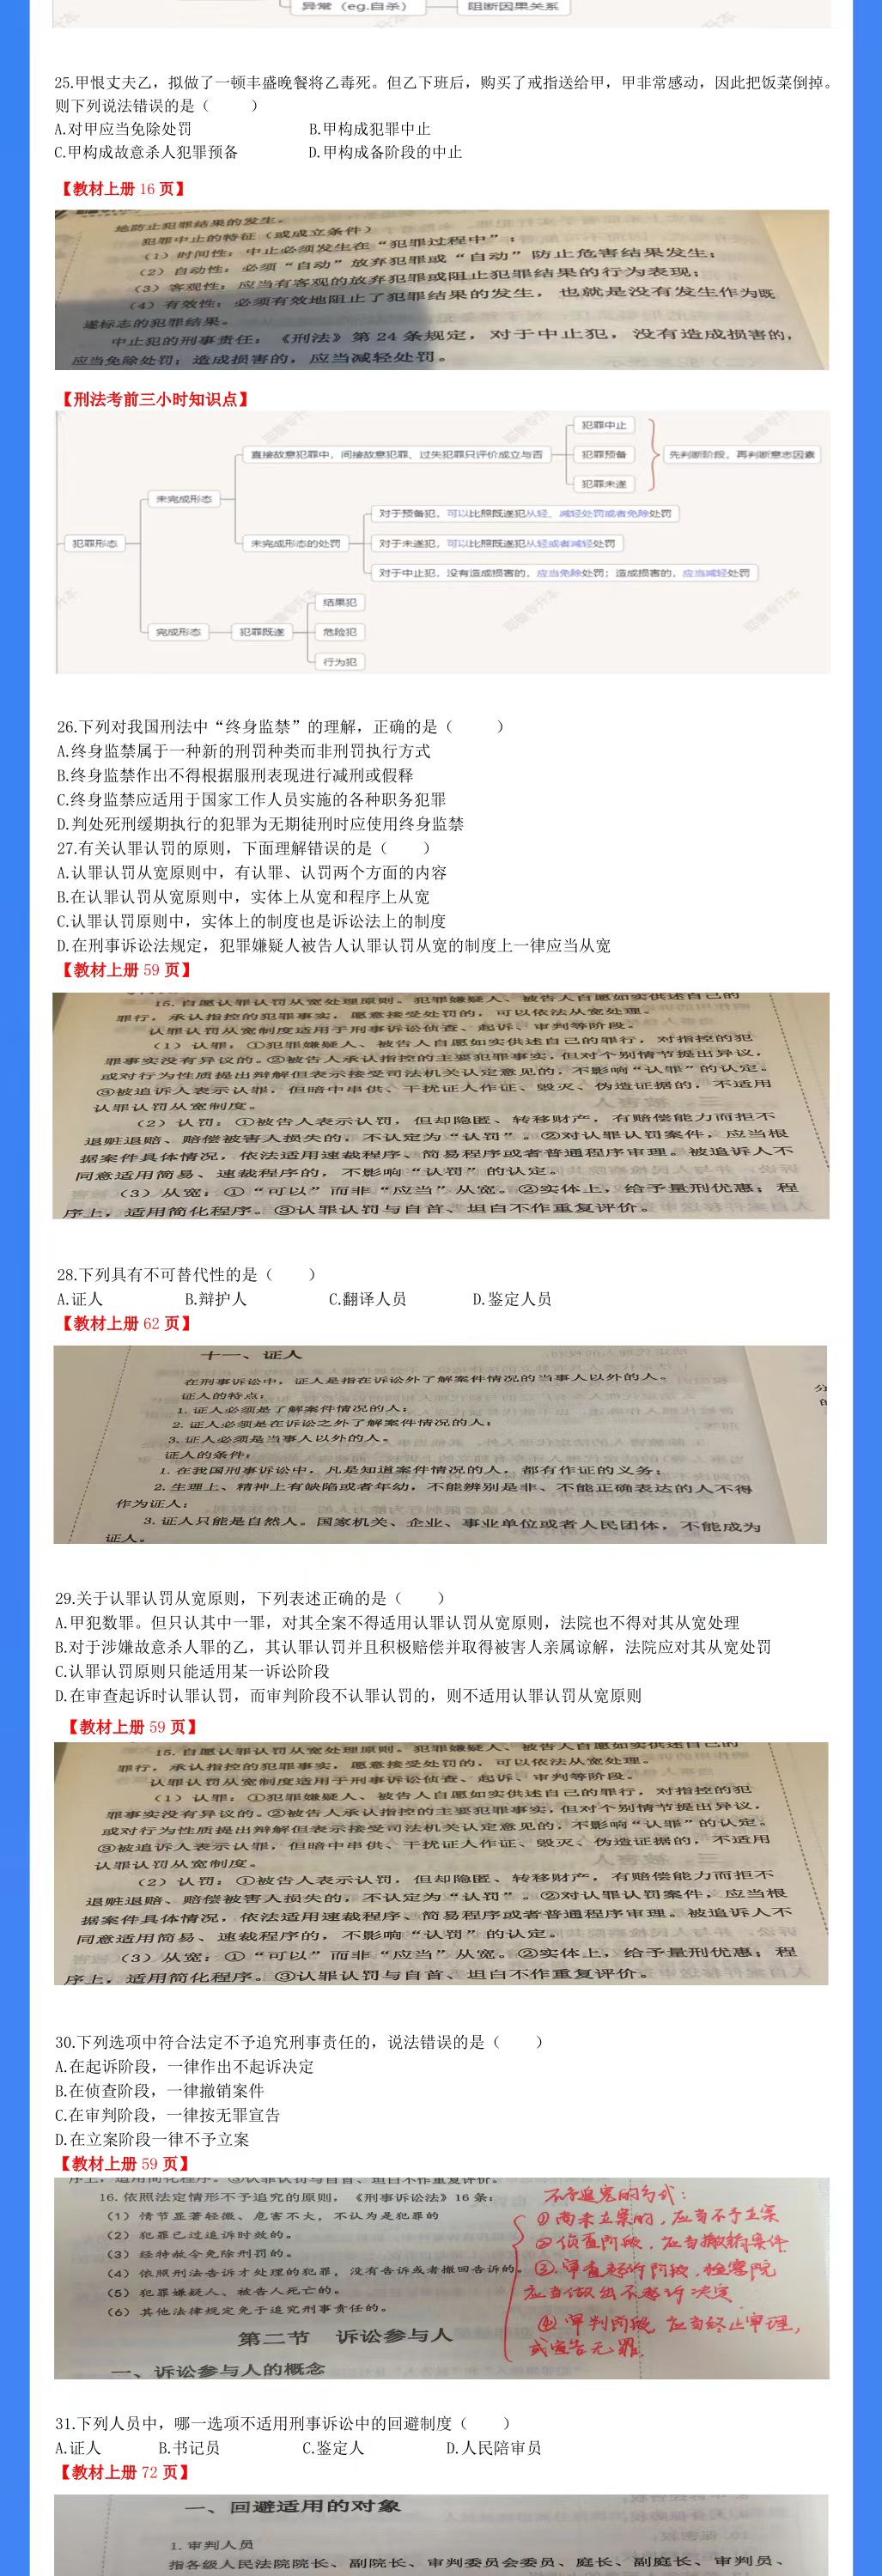 异常（eg.自杀）
阻断因果关系
25.甲恨丈夫乙，拟做了一顿丰盛晚餐将乙毒死。但乙下班后，购买了戒指送给甲，甲非常感动，因此把饭菜倒掉。
则下列说法错误的是（　　）
A.对甲应当免除处罚　　B.甲构成犯罪中止
C.甲构成故意杀人犯罪预备　　D.甲构成备阶段的中止
【教材上册 16 页】
地防止犯罪结果的发生。
犯罪中止的特征（或成立条件）
（1）时间性：中止必须发生在“犯罪过程中”；
（2）自动性：必须“自动”放弃犯罪或“自动”防止危害结果发生；
（3）客观性：应当有客观的放弃犯罪或阻止犯罪结果的行为表现；
（4）有效性：必须有效地阻止了犯罪结果的发生，也就是没有发生作为既
遂标志的犯罪结果。
中止犯的刑事责任：《刑法》第 24 条规定，对于中止犯，没有造成损害的，
应当免除处罚；造成损害的，应当减轻处罚。
【刑法考前三小时知识点】
犯罪形态
未完成形态
直接故意犯罪中，间接故意犯罪、过失犯罪只评价成立与否
犯罪中止
犯罪预备
犯罪未遂
先判断阶段，再判断意志因素
未完成形态的处罚
对于预备犯，可以比照既遂犯从轻、减轻处罚或者免除处罚
对于未遂犯，可以比照既遂犯从轻或者减轻处罚
对于中止犯，没有造成损害的，应当免除处罚；造成损害的，应当减轻处罚
完成形态
犯罪既遂
结果犯
危险犯
行为犯
26.下列对我国刑法中“终身监禁”的理解，正确的是（　　）
A.终身监禁属于一种新的刑罚种类而非刑罚执行方式
B.终身监禁作出不得根据服刑表现进行减刑或假释
C.终身监禁应适用于国家工作人员实施的各种职务犯罪
D.判处死刑缓期执行的犯罪为无期徒刑时应使用终身监禁
27.有关认罪认罚的原则，下面理解错误的是（　　）
A.认罪认罚从宽原则中，有认罪、认罚两个方面的内容
B.在认罪认罚从宽原则中，实体上从宽和程序上从宽
C.认罪认罚原则中，实体上的制度也是诉讼法上的制度
D.在刑事诉讼法规定，犯罪嫌疑人被告人认罪认罚从宽的制度上一律应当从宽
【教材上册 59 页】
15. 自愿认罪认罚从宽处理原则。犯罪嫌疑人、被告人自愿如实供述自己的
罪行，承认指控的犯罪事实，愿意接受处罚的，可以依法从宽处理。
认罪认罚从宽制度适用于刑事诉讼侦查、起诉、审判等阶段。
（1）认罪：①犯罪嫌疑人、被告人自愿如实供述自己的罪行，对指控的犯
罪事实没有异议的。②被告人承认指控的主要犯罪事实，但对个别情节提出异议，
或对行为性质提出辩解但表示接受司法机关认定意见的，不影响“认罪”的认定。
③被追诉人表示认罪，但暗中串供、干扰证人作证、毁灭、伪造证据的，不适用
认罪认罚从宽制度。
（2）认罚：①被告人表示认罚，但却隐匿、转移财产，有赔偿能力而拒不
退赃退赔、赔偿被害人损失的，不认定为“认罚”。②对认罪认罚案件，应当根
据案件具体情况，依法适用速裁程序、简易程序或者普通程序审理。被追诉人不
同意适用简易、速裁程序的，不影响“认罚”的认定。
（3）从宽：①“可以”而非“应当”从宽。②实体上，给予量刑优惠；程
序上，适用简化程序。③认罪认罚与自首、坦白不作重复评价。
28.下列具有不可替代性的是（　　）
A.证人　　B.辩护人　　C.翻译人员　　D.鉴定人员
【教材上册 62 页】
十一、证人
在刑事诉讼中，证人是指在诉讼外了解案件情况的当事人以外的人。
证人的特点：
1. 证人必须是了解案件情况的人；
2. 证人必须是在诉讼之外了解案件情况的人；
3. 证人必须是当事人以外的人。
证人的条件：
1. 在我国刑事诉讼中，凡是知道案件情况的人，都有作证的义务；
2. 生理上、精神上有缺陷或者年幼，不能辨别是非、不能正确表达的人不得
作为证人；
3. 证人只能是自然人。国家机关、企业、事业单位或者人民团体，不能成为
证人。
29.关于认罪认罚从宽原则，下列表述正确的是（　　）
A.甲犯数罪。但只认其中一罪，对其全案不得适用认罪认罚从宽原则，法院也不得对其从宽处理
B.对于涉嫌故意杀人罪的乙，其认罪认罚并且积极赔偿并取得被害人亲属谅解，法院应对其从宽处罚
C.认罪认罚原则只能适用某一诉讼阶段
D.在审查起诉时认罪认罚，而审判阶段不认罪认罚的，则不适用认罪认罚从宽原则
【教材上册 59 页】
15. 自愿认罪认罚从宽处理原则。犯罪嫌疑人、被告人自愿如实供述自己的
罪行，承认指控的犯罪事实，愿意接受处罚的，可以依法从宽处理。
认罪认罚从宽制度适用于刑事诉讼侦查、起诉、审判等阶段。
（1）认罪：①犯罪嫌疑人、被告人自愿如实供述自己的罪行，对指控的犯
罪事实没有异议的。②被告人承认指控的主要犯罪事实，但对个别情节提出异议，
或对行为性质提出辩解但表示接受司法机关认定意见的，不影响“认罪”的认定。
③被追诉人表示认罪，但暗中串供、干扰证人作证、毁灭、伪造证据的，不适用
认罪认罚从宽制度。
（2）认罚：①被告人表示认罚，但却隐匿、转移财产，有赔偿能力而拒不
退赃退赔、赔偿被害人损失的，不认定为“认罚”。②对认罪认罚案件，应当根
据案件具体情况，依法适用速裁程序、简易程序或者普通程序审理。被追诉人不
同意适用简易、速裁程序的，不影响“认罚”的认定。
（3）从宽：①“可以”而非“应当”从宽。②实体上，给予量刑优惠；程
序上，适用简化程序。③认罪认罚与自首、坦白不作重复评价。
30.下列选项中符合法定不予追究刑事责任的，说法错误的是（　　）
A.在起诉阶段，一律作出不起诉决定
B.在侦查阶段，一律撤销案件
C.在审判阶段，一律按无罪宣告
D.在立案阶段一律不予立案
【教材上册 59 页】
序上，适用简化程序。③认罪认罚与自首、坦白不作重复评价。
16. 依照法定情形不予追究的原则，《刑事诉讼法》16 条：
（1）情节显著轻微、危害不大，不认为是犯罪的
（2）犯罪已过追诉时效的。
（3）经特赦令免除刑罚的。
（4）依照刑法告诉才处理的犯罪，没有告诉或者撤回告诉的。
（5）犯罪嫌疑人、被告人死亡的。
（6）其他法律规定免于追究刑事责任的。
不予追究的方式：
①尚未立案的，应当不予立案
②侦查阶段，应当撤销案件
③审查起诉阶段，检察院
应当做出不起诉决定
④审判阶段，应当终止审理，
或宣告无罪.
第二节　诉讼参与人
一、诉讼参与人的概念
31.下列人员中，哪一选项不适用刑事诉讼中的回避制度（　　）
A.证人　　B.书记员　　C.鉴定人　　D.人民陪审员
【教材上册 72 页】
一、回避适用的对象
1. 审判人员
指各级人民法院院长、副院长、审判委员会委员、庭长、副庭长、审判员、